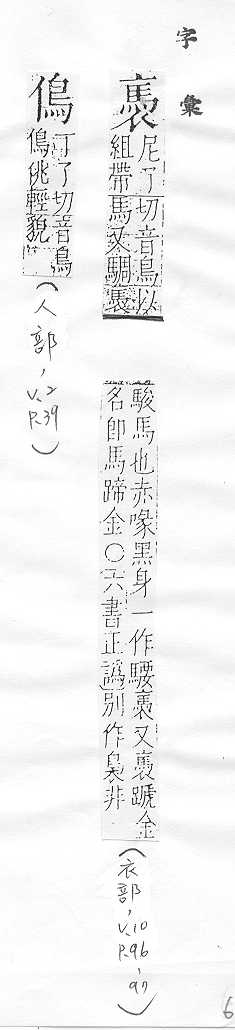 字彙
裊
尼了切音鳥以
組帶馬又騆裊
駿馬也赤喙黑身一作騕裊又裊蹏金
名即馬蹄金○六書正譌別作袅非
(衣部,V.10
P.96,97)
㒵丁了切音鳥
佻輕貌
(人部,V.2
P.39)
6